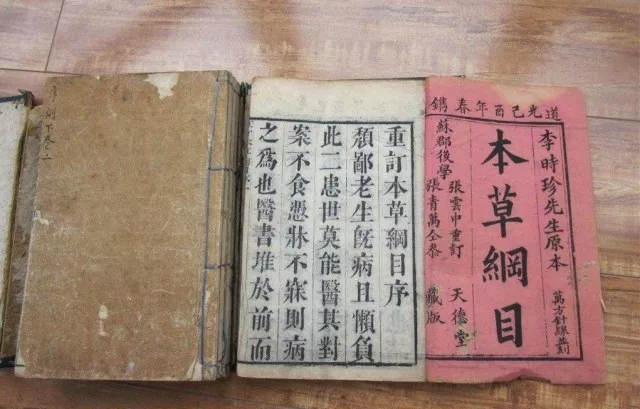 道光己酉年春鐫
李時珍先生原本
萬方針線並刻
本草綱目
蘇郡後學
張雲中重訂
張青萬仝叅
天德堂
藏版
重訂本草綱目序
頹鄙老生旣病且懶負
此二患世莫能醫其對
案不食憑牀不寐則病
之爲也醫書堆於前而